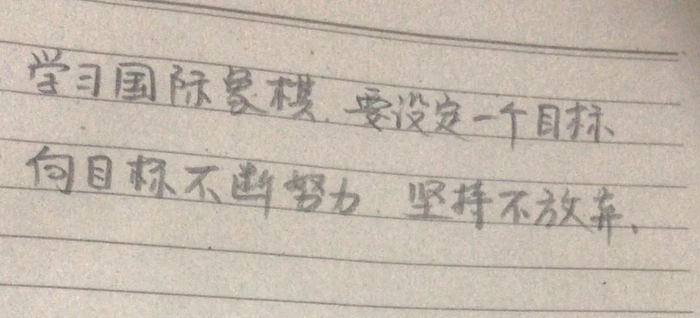 学习国际象棋、要设定一个目标、
向目标不断努力、坚持不放弃、